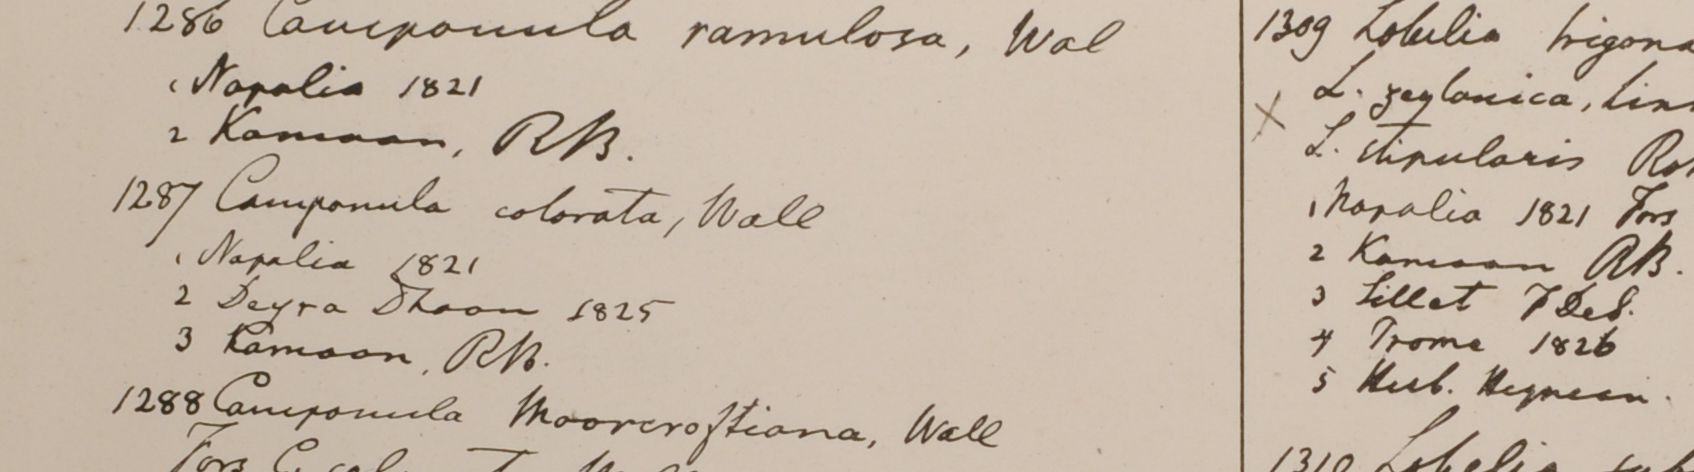 1286 Campanula ramulosa, Wal
1 Napalia 1821
2 Kamaon, RB.
1287 Campanula colorata, Wall
1 Napalia 1821
2 Deyra Dhoon 1825
3 Kamaon, RB.
1288 Campanula Moorcroftiana, Wall
1309 Lobelia trigona
L. zeylanica, Linn
X
L. stipularis Rot
1 Napalia 1821
2 Kamaon RB.
3 Sillet F DeS.
4 Prome 1826
5 Herb. Heynean.
1310 Lobelia